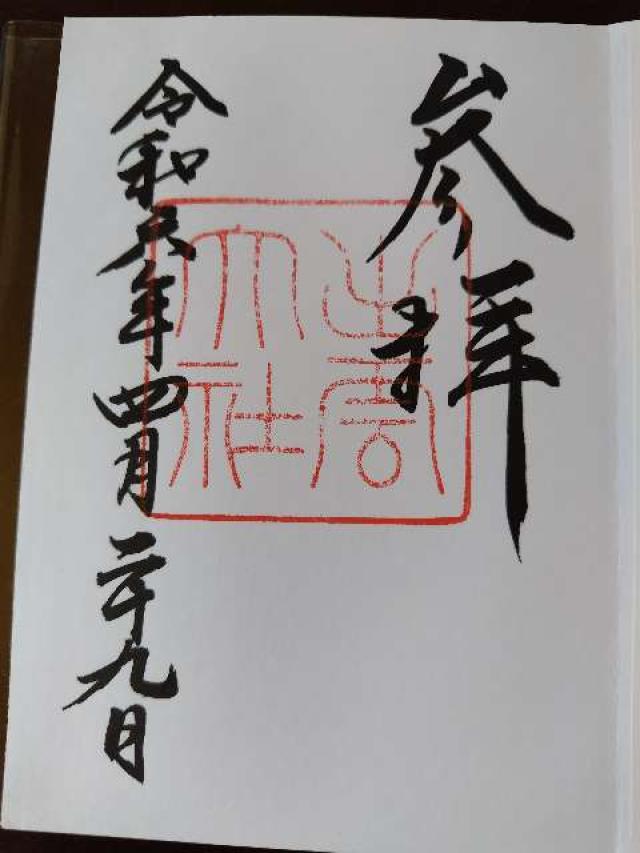 参拝
出雲
大社
令和六年四月二十九日